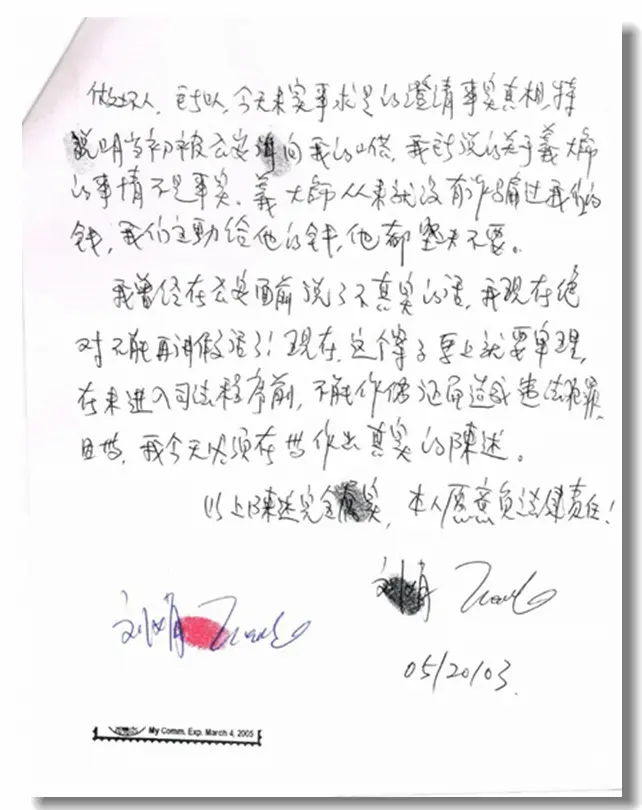 做坏人，所以，今天来实事求是的澄清事实真相，特
说明当初被公安讯问我的口供，我所说的关于義大師
的事情不是事实。義大師从来就没有诈骗过我们的
钱，我们主動给他的钱，他都坚决不要。
我曾经在公安面前说了不真实的话，我现在绝
对不能再讲假话了！现在，这个案子要上就要审理，
在未进入司法程序前，不能作偽证而造成违法犯罪，
因此，我今天必须在此作出真实的陳述。
以上陳述完全属实，本人愿意负法律责任！
刘娟
刘娟
05/20/03.
My Comm. Exp. March 4, 2005